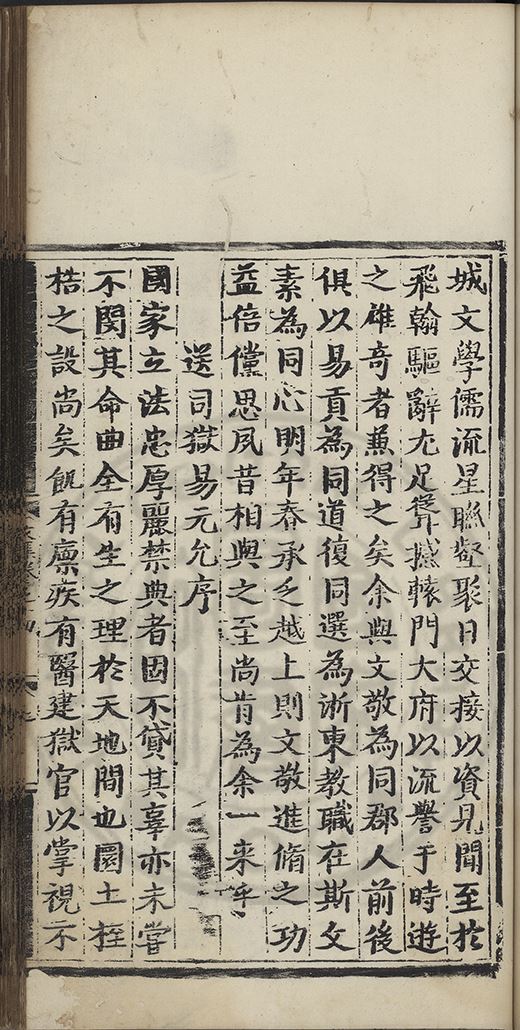 城文學儒流星聯壑聚日交接以資見聞至於
飛翰驅辭尤足聳撼轅門大府以流譽于時遊
之雄奇者兼得之矣余與文敬為同郡人前後
俱以易貢為同道復同選為浙東教職在斯文
素為同心明年春承乏越上則文敬進脩之功
益倍儻思夙昔相與之至尚肯為余一来乎
送司獄易元允序
國家立法忠厚麗禁典者固不貸其辜亦未嘗
不閔其命曲全有生之理於天地間也圜土桎
梏之設尚矣飢有廪疾有醫建獄官以掌視不